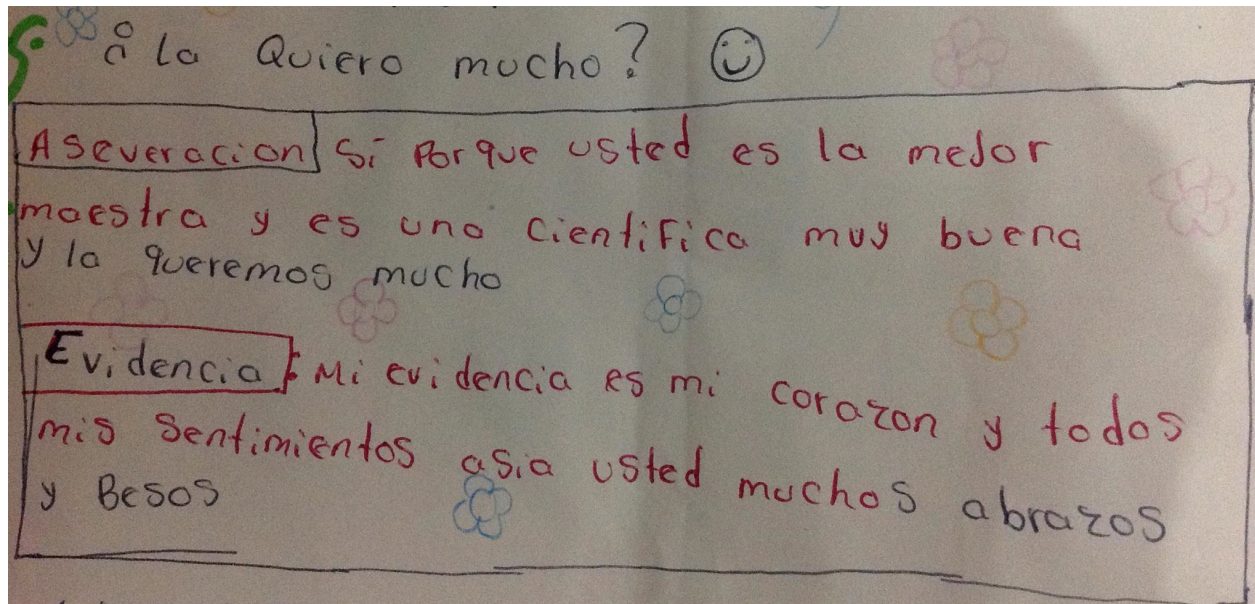 ¿ la Quiero mucho? ☺
Aseveracion Si Porque usted es la mejor
maestra y es una cientifica muy buena
y la queremos mucho
Evidencia: Mi evidencia es mi corazon y todos
mis Sentimientos asia usted muchos abrazos
y Besos